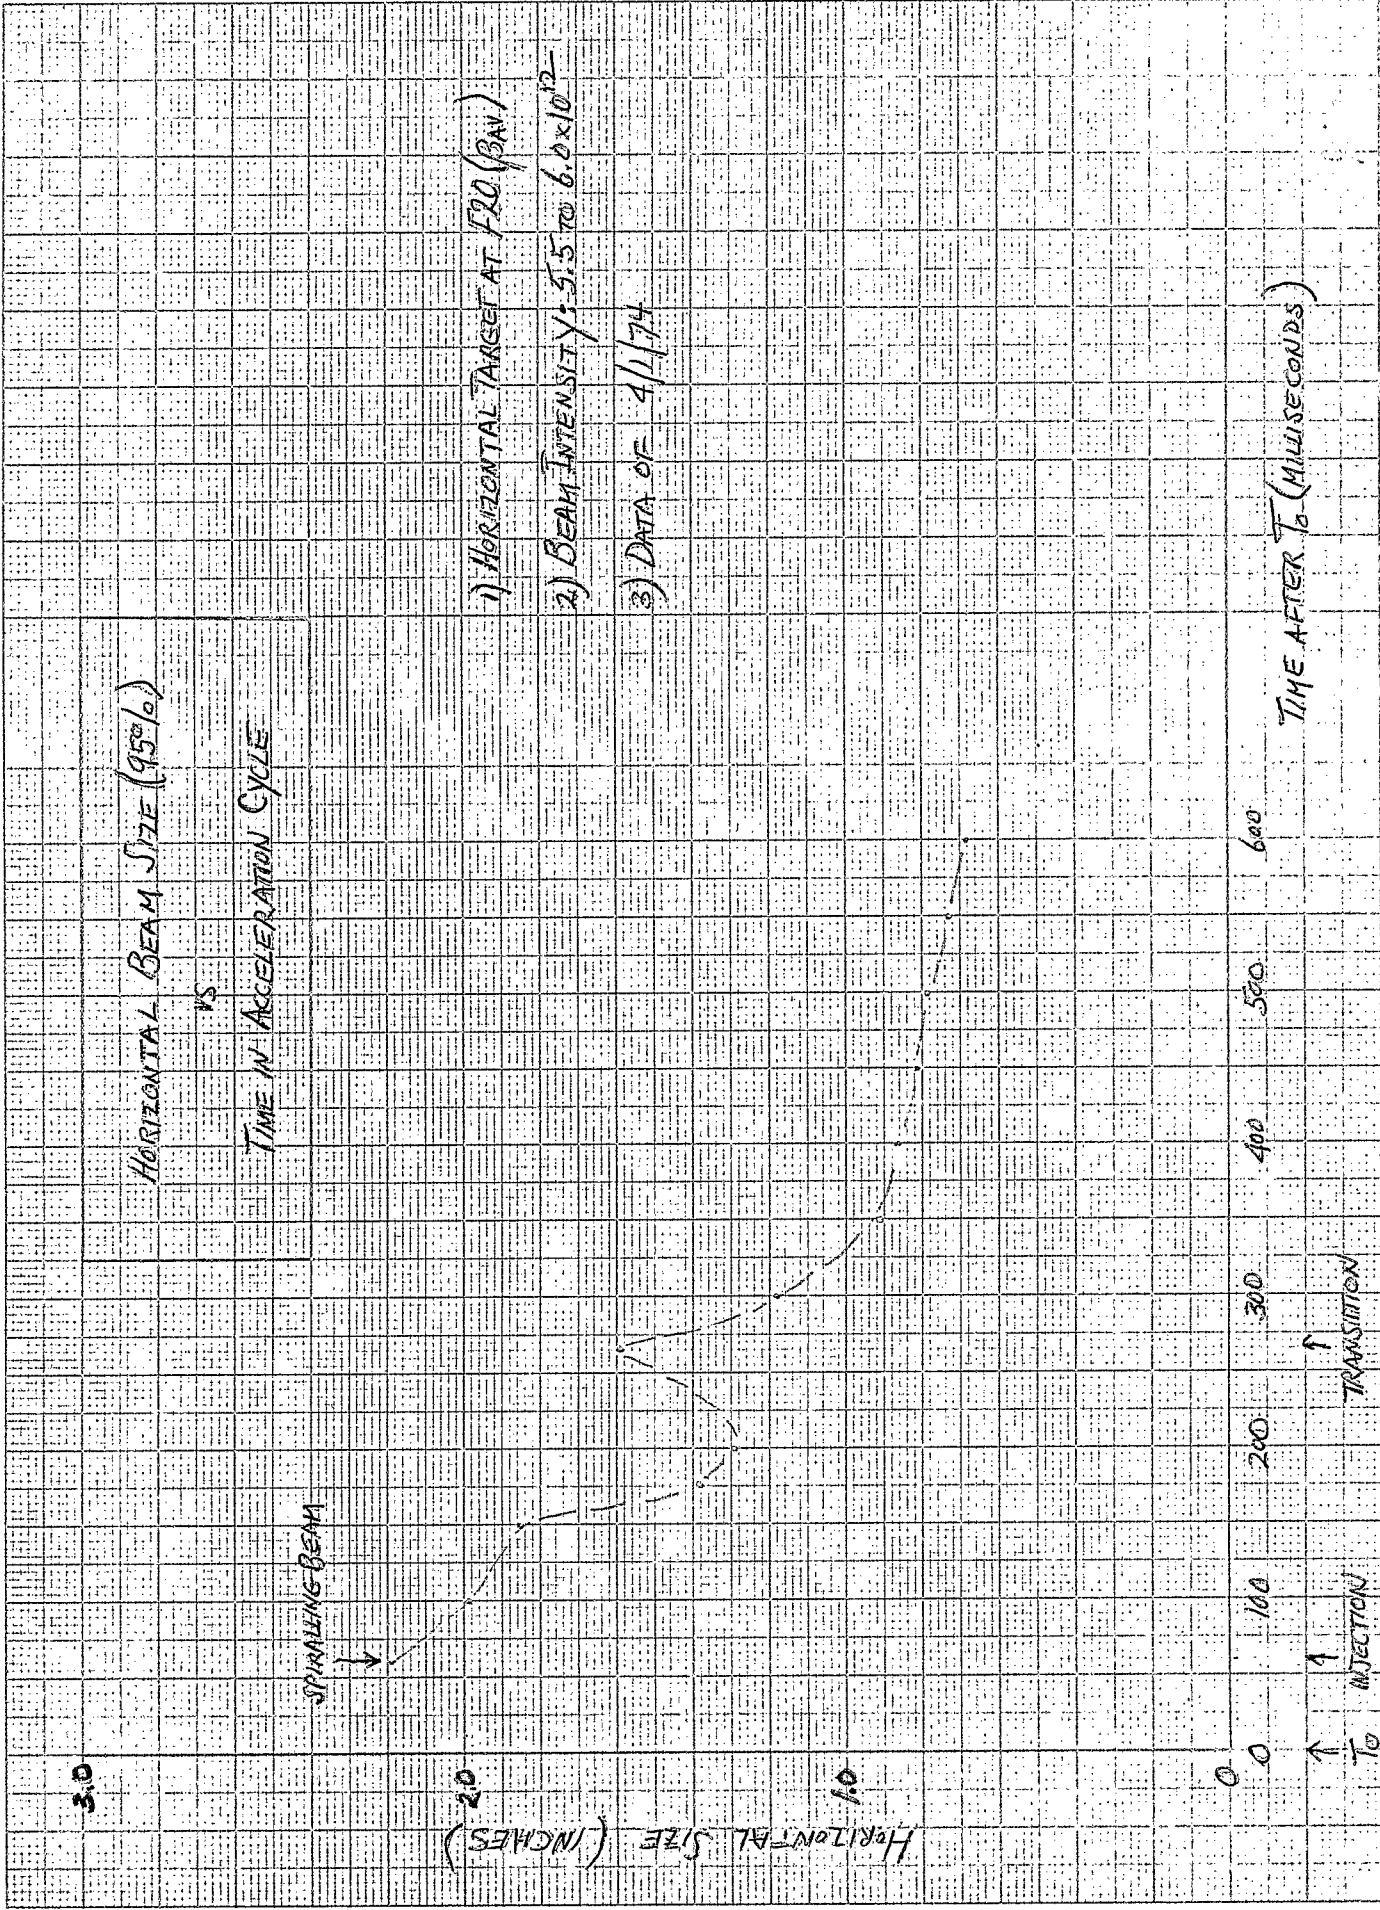 HORIZONTAL BEAM SIZE (95%)
VS
TIME IN ACCELERATION CYCLE
1) HORIZONTAL TARGET AT F20 (βAV.)
2) BEAM INTENSITY: 5.5 TO 6.0x10^12
3) DATA OF 4/1/74
SPIRALLING BEAM
3.0
2.0
1.0
0
HORIZONTAL SIZE (INCHES)
0 100 200 300 400 500 600
TIME AFTER T0 (MILLISECONDS)
T0 INJECTION TRANSITION